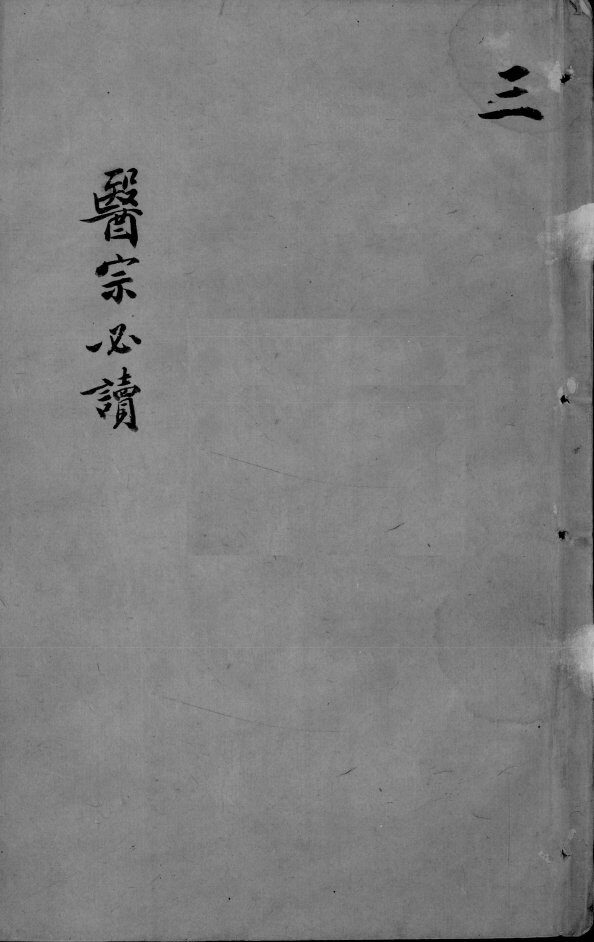 三
醫宗必讀